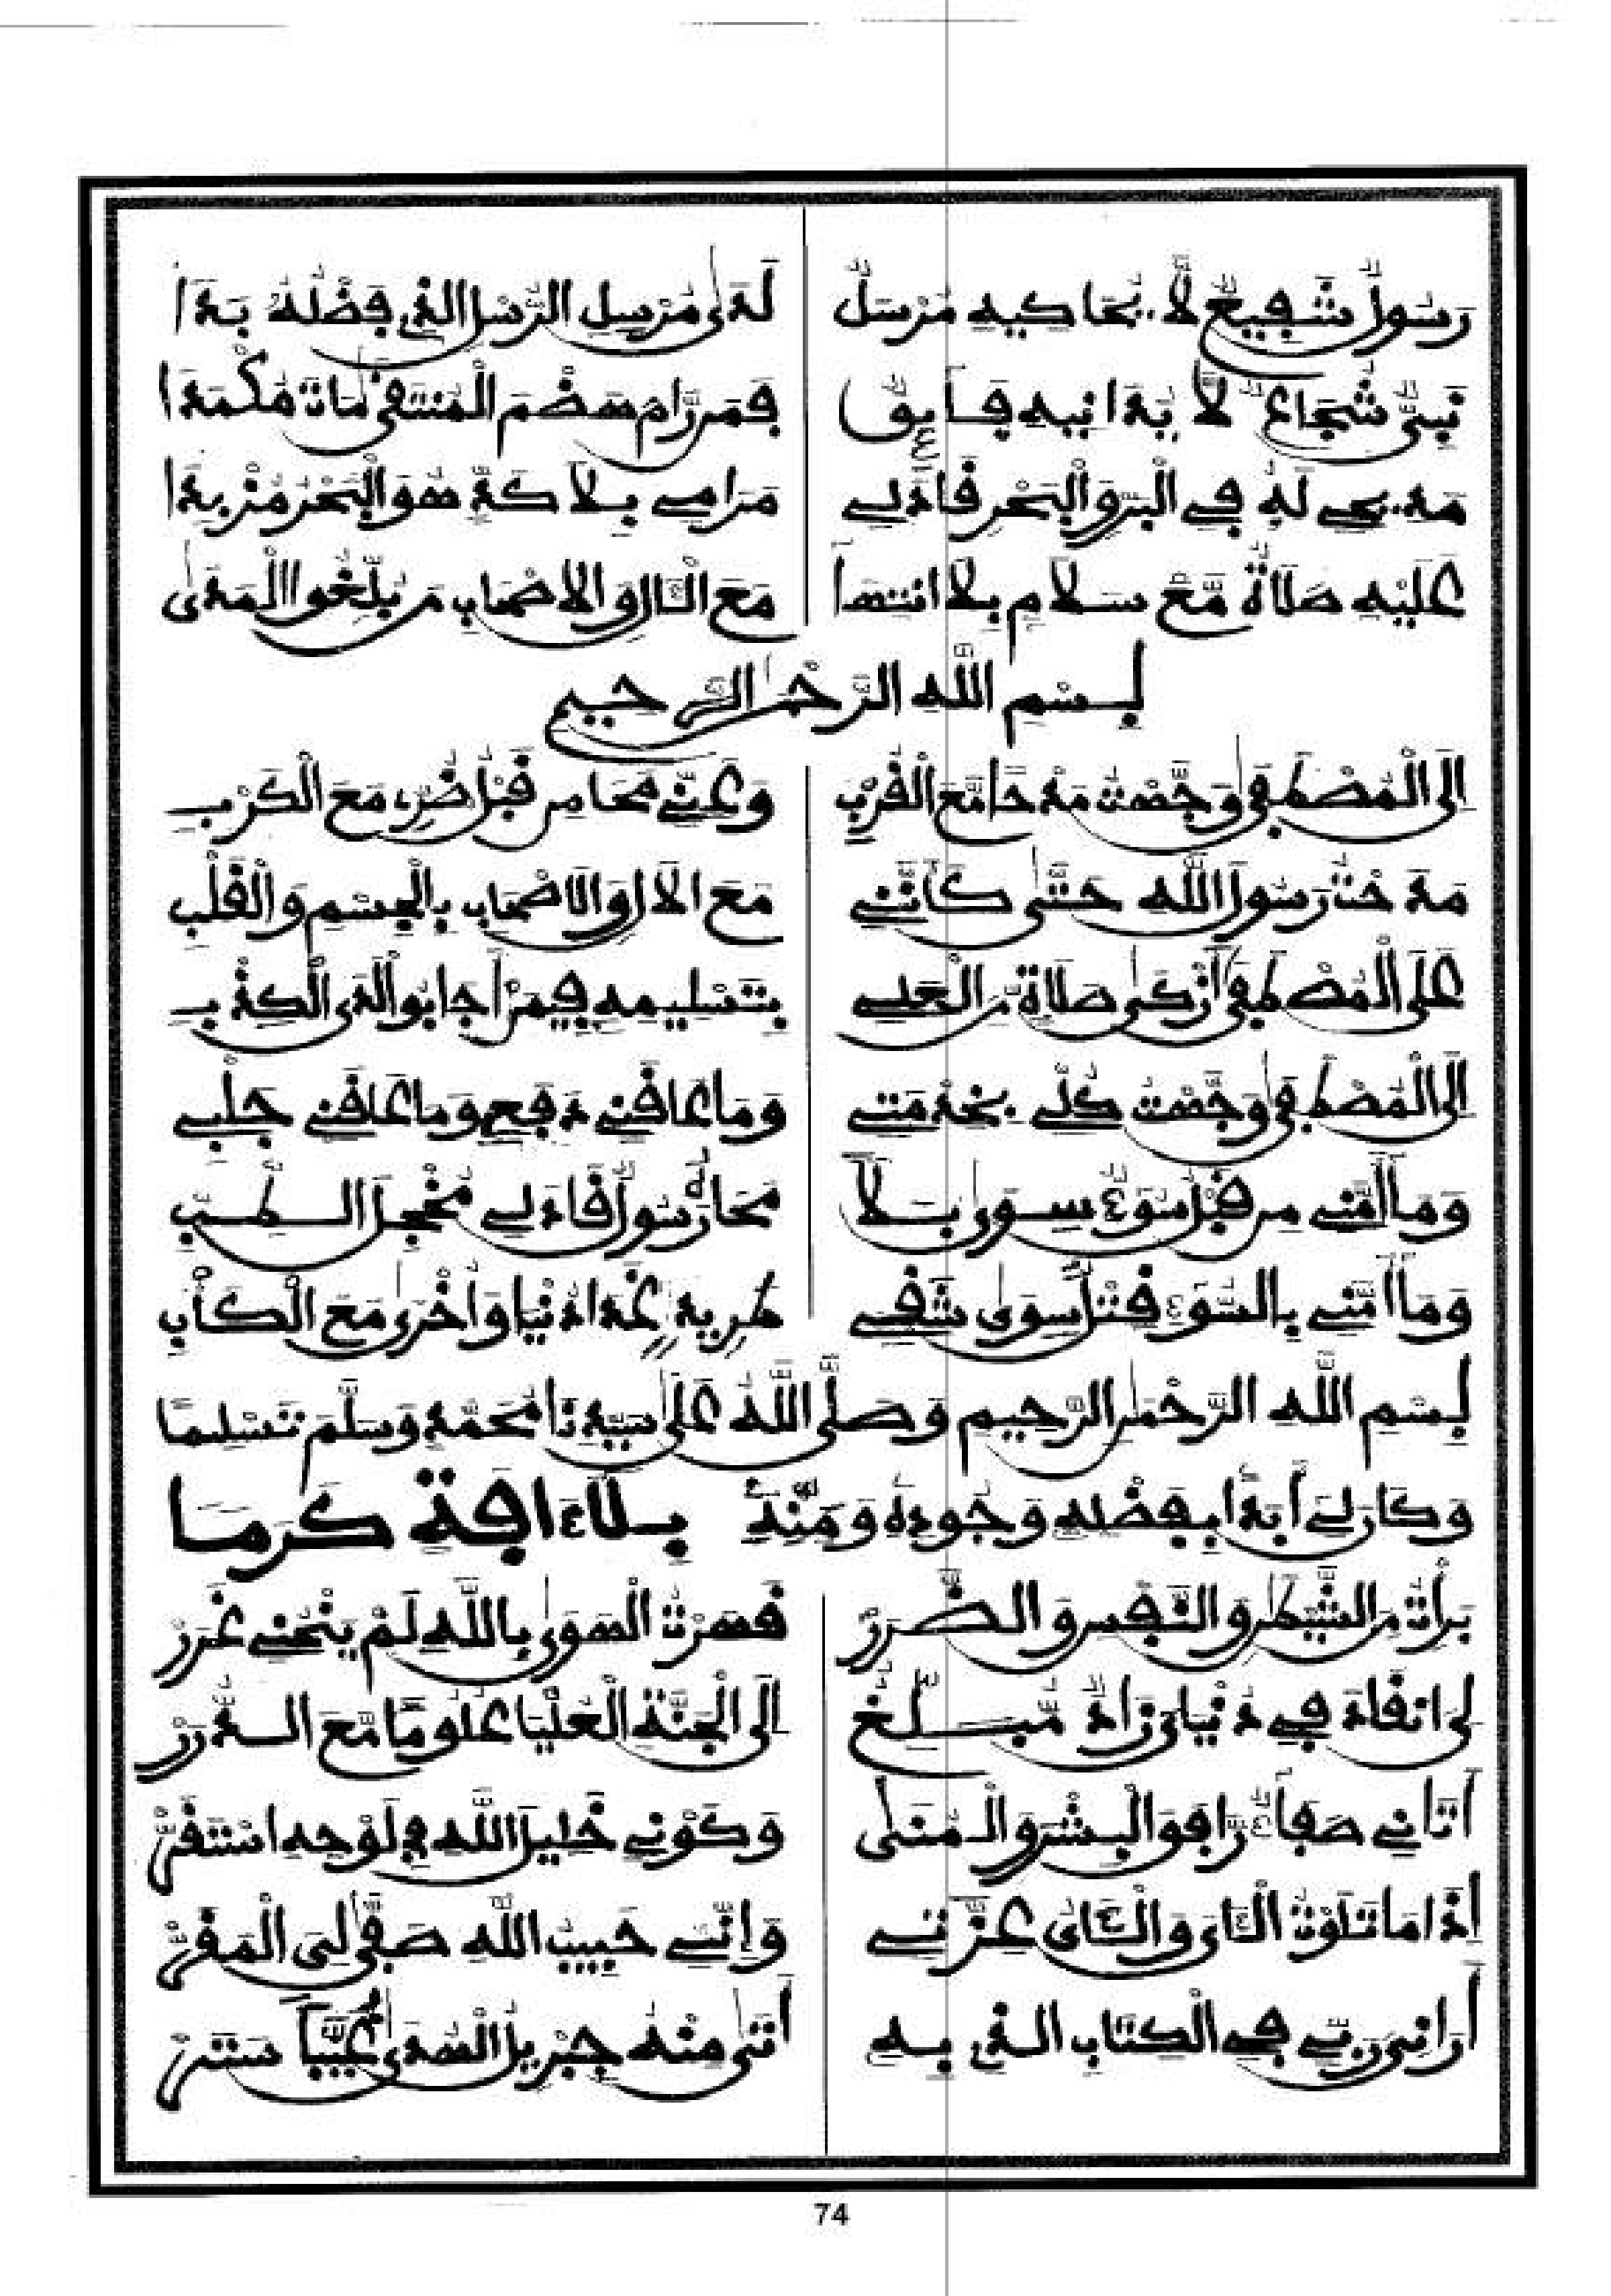 رَسُولٌ شَفِيعٌ لَّا يُحَاكِيهِ مُرْسَلٌ لَدَى مُرْسِلِ الرُّسْلِ الذِي فَضْلُهُ بَدَا
نَبِيٌّ شُجَاعٌ لَّا يُدَانِيهِ فَائِقٌ فَمَن رَّامَ هَضْمَ الْمُنتَقَى مَاتَ مُكْمَدَا
مَدِيحِي لَهُ فِي الْبَرِّ وَالْبَحْرِ قَادَ لِي مَرَامِي بِلَا كَدٍّ هُوَ الْبَحْرُ مُزْبِدَا
عَلَيْهِ صَلَاةٌ مَّعَ سَلَامٍ بِلَا انتِهَا مَعَ الْئَالِ وَالَاصْحَابِ مَن بَلَّغُوا الْمَدَى
بِسْمِ اللَّهِ الرَّحْمَٰنِ الرَّحِيمِ
إِلَى الْمُصْطَفَى وَجَّهْتُ مَدْحًا مَّعَ الْقُرْبِ وَعَنِّي مَحَا مِن قَبْلُ ضُرِّي مَعَ الْكَرْبِ
مَدَحْتُ رَسُولَ اللَّهِ حَتَّى كَأَنَّنِي مَعَ الَالِ وَالَاصْحَابِ بِالْجِسْمِ وَالْقَلْبِ
عَلَى الْمُصْطَفَى أَزْكَى صَلَاةٍ مِّنَ الْعَلِي بِتَسْلِيمِهِ فِيمَنْ أَجَابُوا لَدَى الْكَذْبِ
إِلَى الْمُصْطَفَى وَجَّهْتُ كُلِّي بِخِدْمَتِي وَمَا عَاقَنِي دَفْعِي وَمَا عَاقَنِي جَلْبِي
وَمَا أَمَّنِي مِن قَبْلُ سُوءٌ سِوَى بَلًا مَحَاهُ رَسُولٌ قَادَ لِي مُخْجِلَ الطِّبِّ
وَمَا أَمَّنِي بِالسُّوءِ قَتْلٌ سِوَى شَقِي طَرِيدٍ غَدَا دُنْيَا وَأُخْرَى مَعَ الْكَلْبِ
بِسْمِ اللَّهِ الرَّحْمَٰنِ الرَّحِيمِ وَصَلَّى اللَّهُ عَلَى سَيِّدِنَا مُحَمَّدٍ وَسَلَّمَ تَسْلِيمًا
وَكَانَ لِي أَبَدًا بِفَضْلِهِ وَجُودِهِ وَمَنِّهِ بِلَا ءَافَةٍ كَرَمًا
بَرِأْتُ مِنَ الشَّيْطَٰنِ وَالنَّفْسِ وَالضَّرَرْ قَهَرْتُ الْهَوَى بِاللَّهِ لَمْ يَنْحُنِي غَرَرْ
لِيَ انقَادَ فِي دُنْيَايَ زَادٌ مُّبَلِّغٌ إِلَى الْجَنَّةِ الْعُلْيَا عُلُومًا مَّعَ الدُّرَرْ
أَتَانِي صَفَاءٌ رَّافَقَ الْبِشْرَ وَالْمُنَى وَكَوْنِي خَلِيلَ اللَّهِ فِي لَوْحِهِ اسْتَقَرّْ
إِذَا مَا تَلَوْتُ الْئَايَ وَالْئَايُ عَزَّنِي وَإِنِّي حَبِيبُ اللَّهِ صَفَّى لِيَ الْمَقَرّْ
أَرَانِيَ رَبِّي فِي الْكِتَابِ الذِي بِهِ أَتَى مِنْهُ جِبْرِيلُ الْهُدَى سَتَرْ